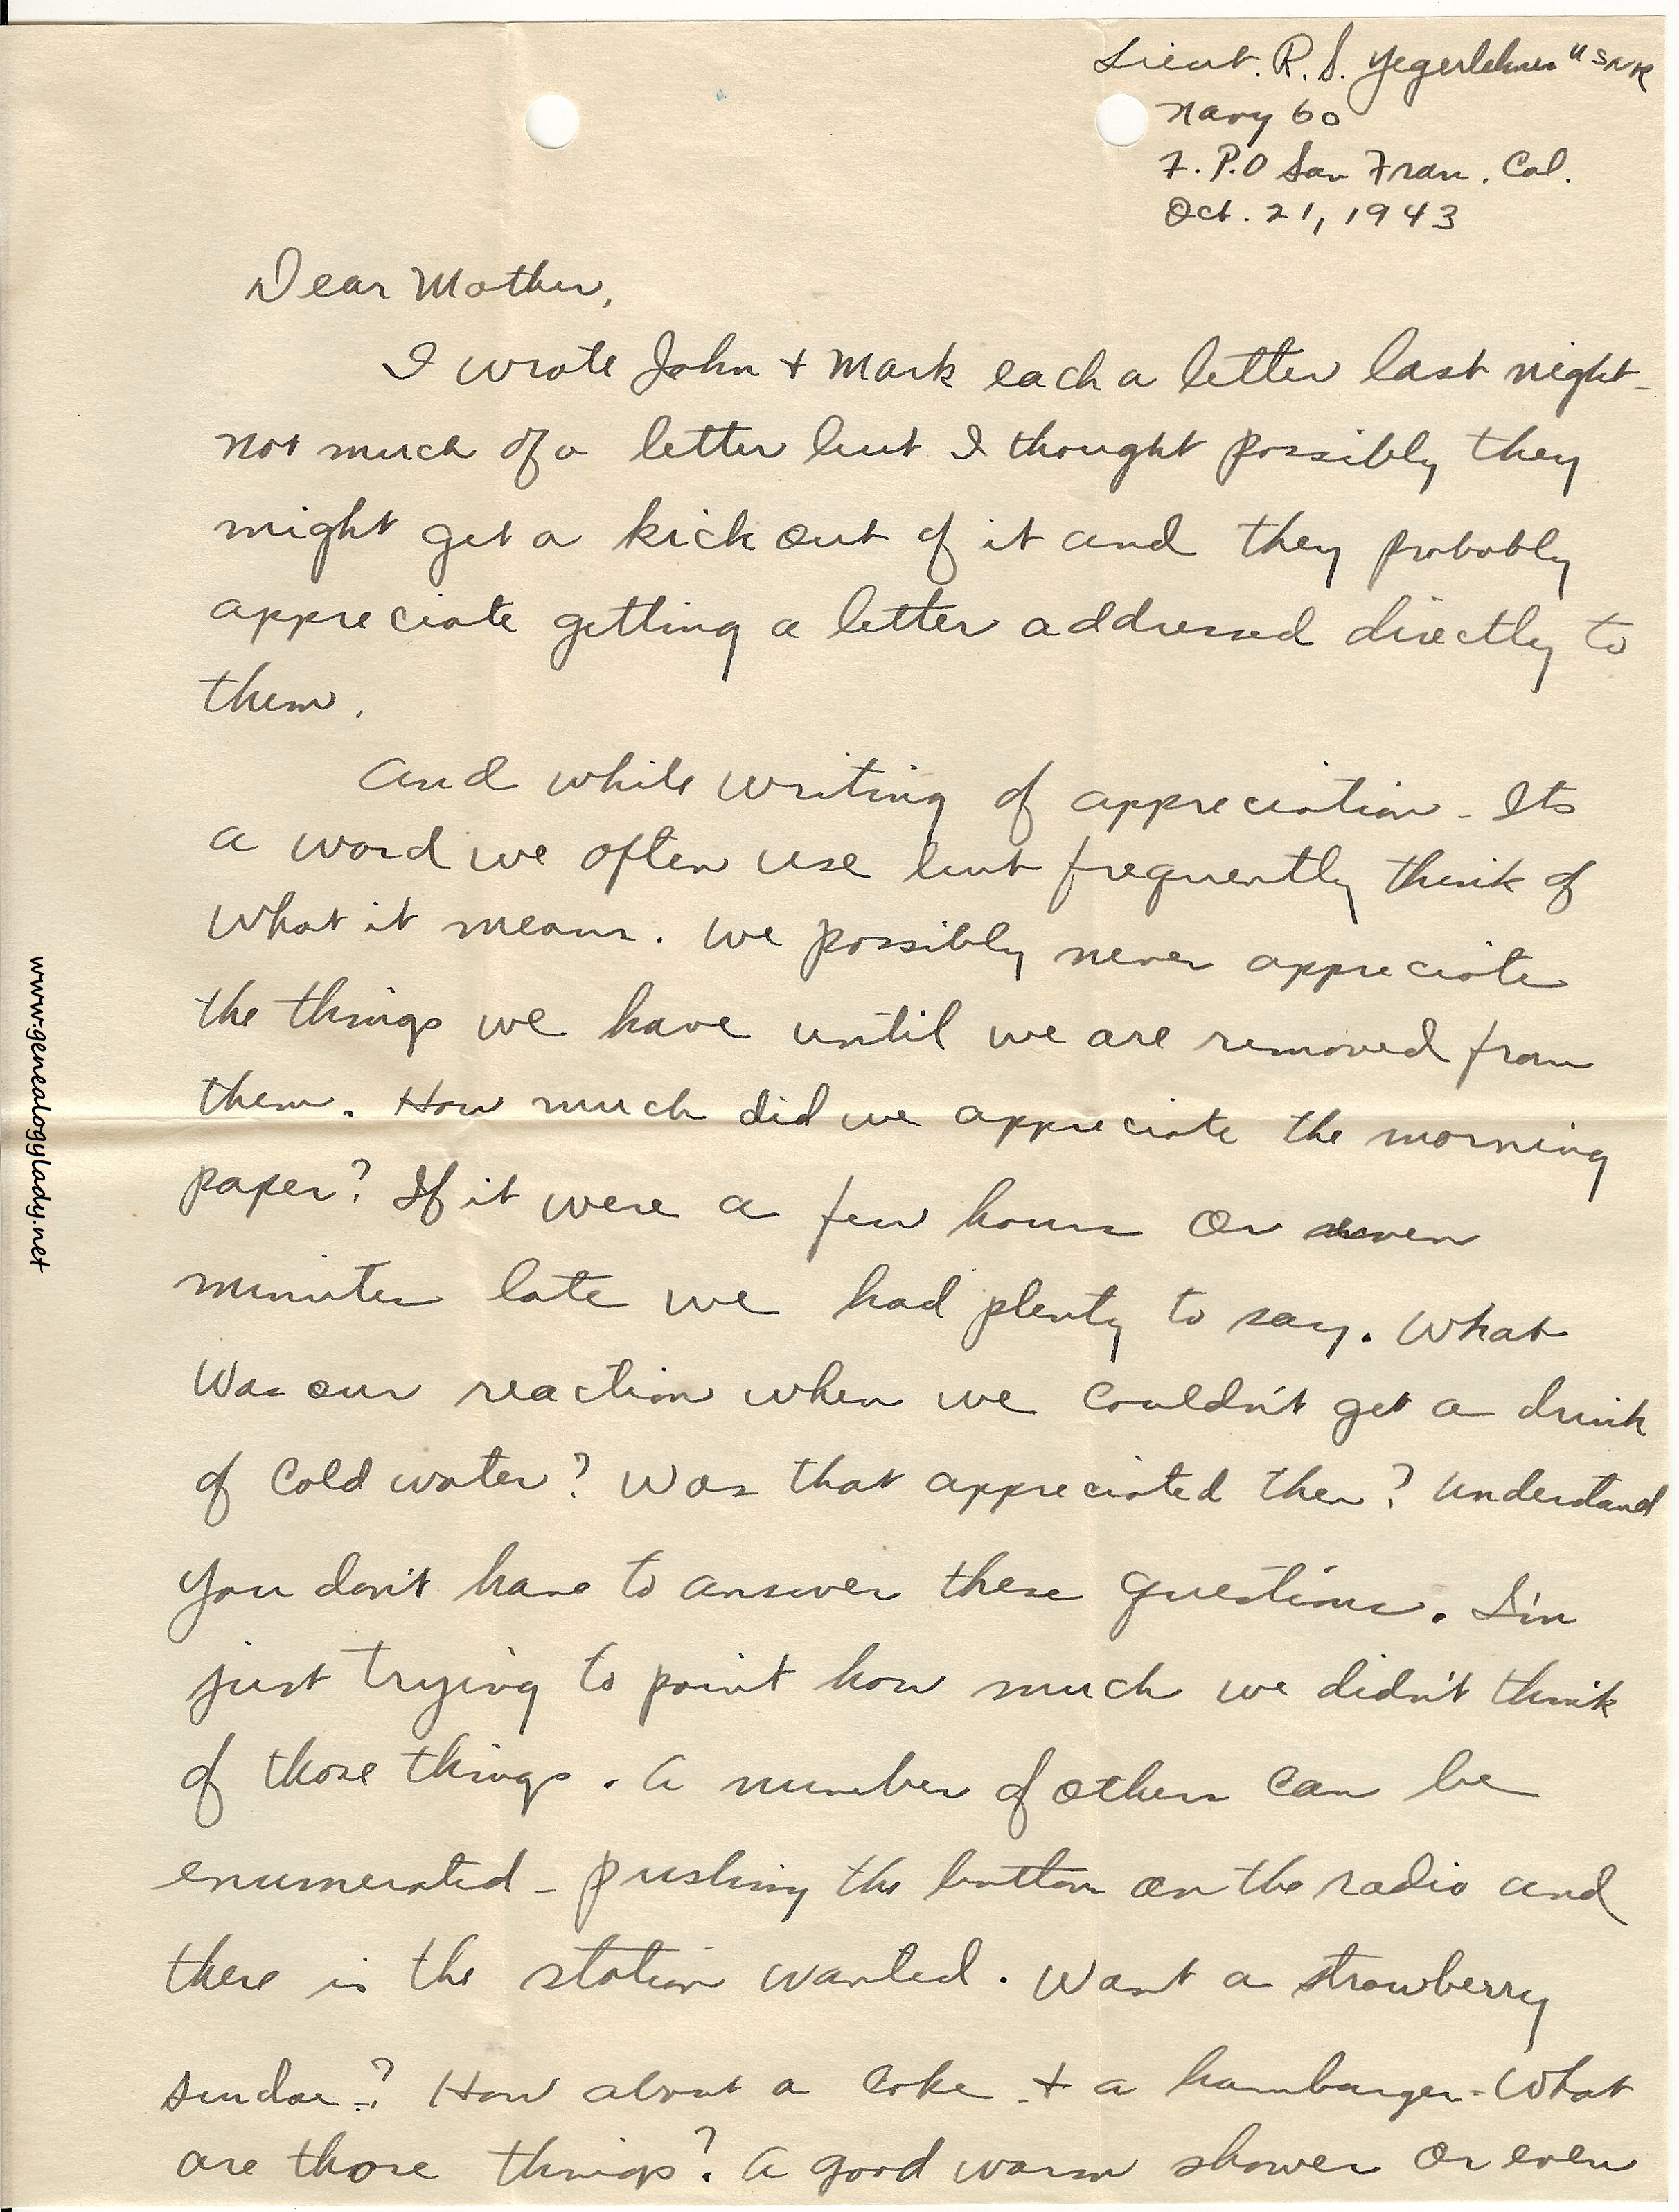 Lieut. R. S. Yegerlehner USNR
Navy 60
F.P.O San Fran. Cal.
Oct. 21, 1943
Dear Mother,
I wrote John + Mark each a letter last night -
not much of a letter but I thought possibly they
might get a kick out of it and they probably
appreciate getting a letter addressed directly to
them.
And while writing of appreciation - Its
a word we often use but frequently think of
what it means. We possibly never appreciate
the things we have until we are removed from
them. How much did we appreciate the morning
paper? If it were a few hours or even
minutes late we had plenty to say. What
was our reaction when we couldn't get a drink
of cold water? Was that appreciated then? Understand
you don't have to answer these questions. I'm
just trying to point how much we didn't think
of those things. A number of others can be
enumerated - pushing the button on the radio and
there is the station wanted. Want a strawberry
sundae? How about a coke + a hamburger - What
are those things? A good warm shower or even
www.genealogylady.net